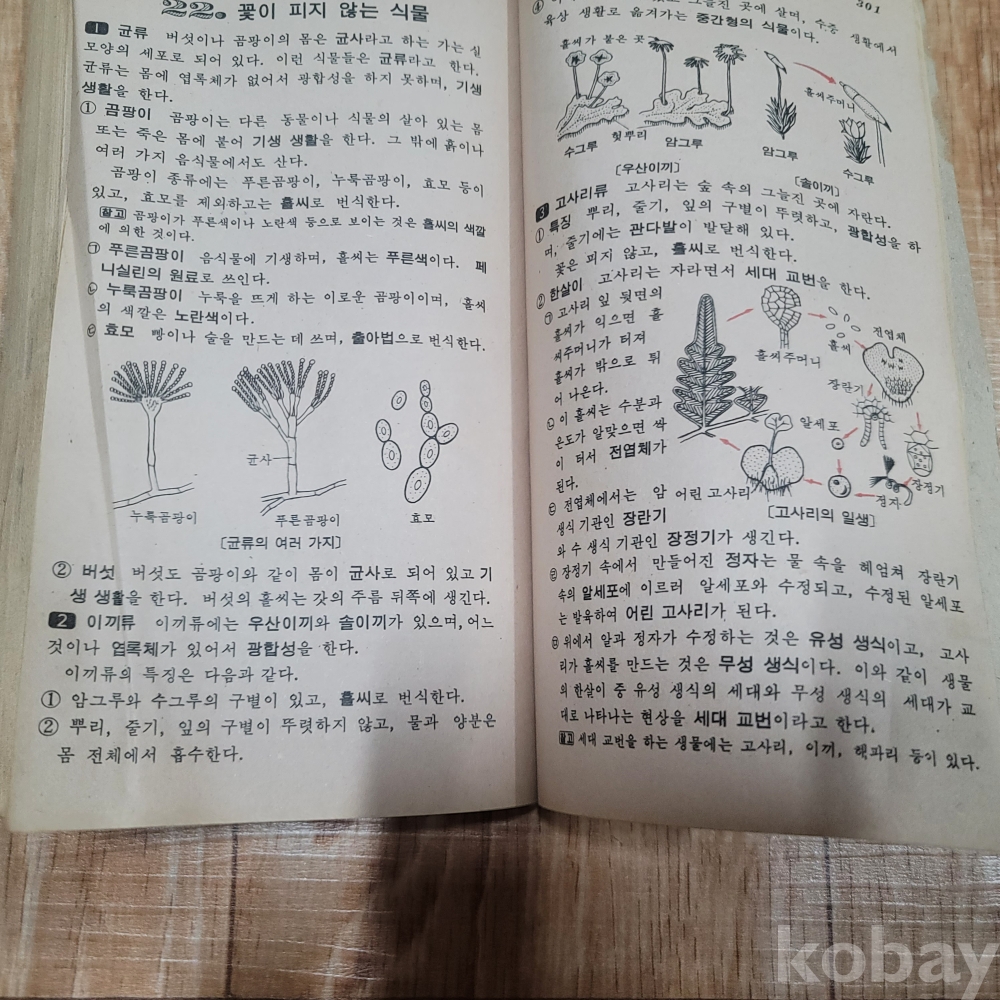 22. 꽃이 피지 않는 식물
1 균류 버섯이나 곰팡이의 몸은 균사라고 하는 가는 실
모양의 세포로 되어 있다. 이런 식물들은 균류라고 한다.
균류는 몸에 엽록체가 없어서 광합성을 하지 못하며, 기생
생활을 한다.
① 곰팡이 곰팡이는 다른 동물이나 식물의 살아 있는 몸
또는 죽은 몸에 붙어 기생 생활을 한다. 그 밖에 흙이나
여러 가지 음식물에서도 산다.
곰팡이 종류에는 푸른곰팡이, 누룩곰팡이, 효모 등이
있고, 효모를 제외하고는 홀씨로 번식한다.
참고 곰팡이가 푸른색이나 노란색 등으로 보이는 것은 홀씨의 색깔
에 의한 것이다.
㉠ 푸른곰팡이 음식물에 기생하며, 홀씨는 푸른색이다. 페
니실린의 원료로 쓰인다.
㉡ 누룩곰팡이 누룩을 뜨게 하는 이로운 곰팡이이며, 홀씨
의 색깔은 노란색이다.
㉢ 효모 빵이나 술을 만드는 데 쓰며, 출아법으로 번식한다.
균사
누룩곰팡이 푸른곰팡이 효모
[균류의 여러 가지]
② 버섯 버섯도 곰팡이와 같이 몸이 균사로 되어 있고 기
생 생활을 한다. 버섯의 홀씨는 갓의 주름 뒤쪽에 생긴다.
2 이끼류 이끼류에는 우산이끼와 솔이끼가 있으며, 어느
것이나 엽록체가 있어서 광합성을 한다.
이끼류의 특징은 다음과 같다.
① 암그루와 수그루의 구별이 있고, 홀씨로 번식한다.
② 뿌리, 줄기, 잎의 구별이 뚜렷하지 않고, 물과 양분은
몸 전체에서 흡수한다.
301
그늘진 곳에 살며, 수중 생활에서
육상 생활로 옮겨가는 중간형의 식물이다.
홀씨가 붙은 곳
홀씨주머니
헛뿌리
수그루 암그루 암그루 수그루
[우산이끼] [솔이끼]
3 고사리류 고사리는 숲 속의 그늘진 곳에 자란다.
① 특징 뿌리, 줄기, 잎의 구별이 뚜렷하고, 광합성을 하
며, 줄기에는 관다발이 발달해 있다.
꽃은 피지 않고, 홀씨로 번식한다.
② 한살이 고사리는 자라면서 세대 교번을 한다.
㉠ 고사리 잎 뒷면의
홀씨가 익으면 홀
씨주머니가 터져
홀씨가 밖으로 튀
어 나온다.
㉡ 이 홀씨는 수분과
온도가 알맞으면 싹
이 터서 전엽체가
된다.
홀씨주머니
홀씨
전엽체
장란기
알세포
장정기
정자
어린 고사리
[고사리의 일생]
㉢ 전엽체에서는 암
생식 기관인 장란기
와 수 생식 기관인 장정기가 생긴다.
㉣ 장정기 속에서 만들어진 정자는 물 속을 헤엄쳐 장란기
속의 알세포에 이르러 알세포와 수정되고, 수정된 알세포
는 발육하여 어린 고사리가 된다.
㉤ 위에서 알과 정자가 수정하는 것은 유성 생식이고, 고사
리가 홀씨를 만드는 것은 무성 생식이다. 이와 같이 생물
의 한살이 중 유성 생식의 세대와 무성 생식의 세대가 교
대로 나타나는 현상을 세대 교번이라고 한다.
참고 세대 교번을 하는 생물에는 고사리, 이끼, 해파리 등이 있다.
kobay